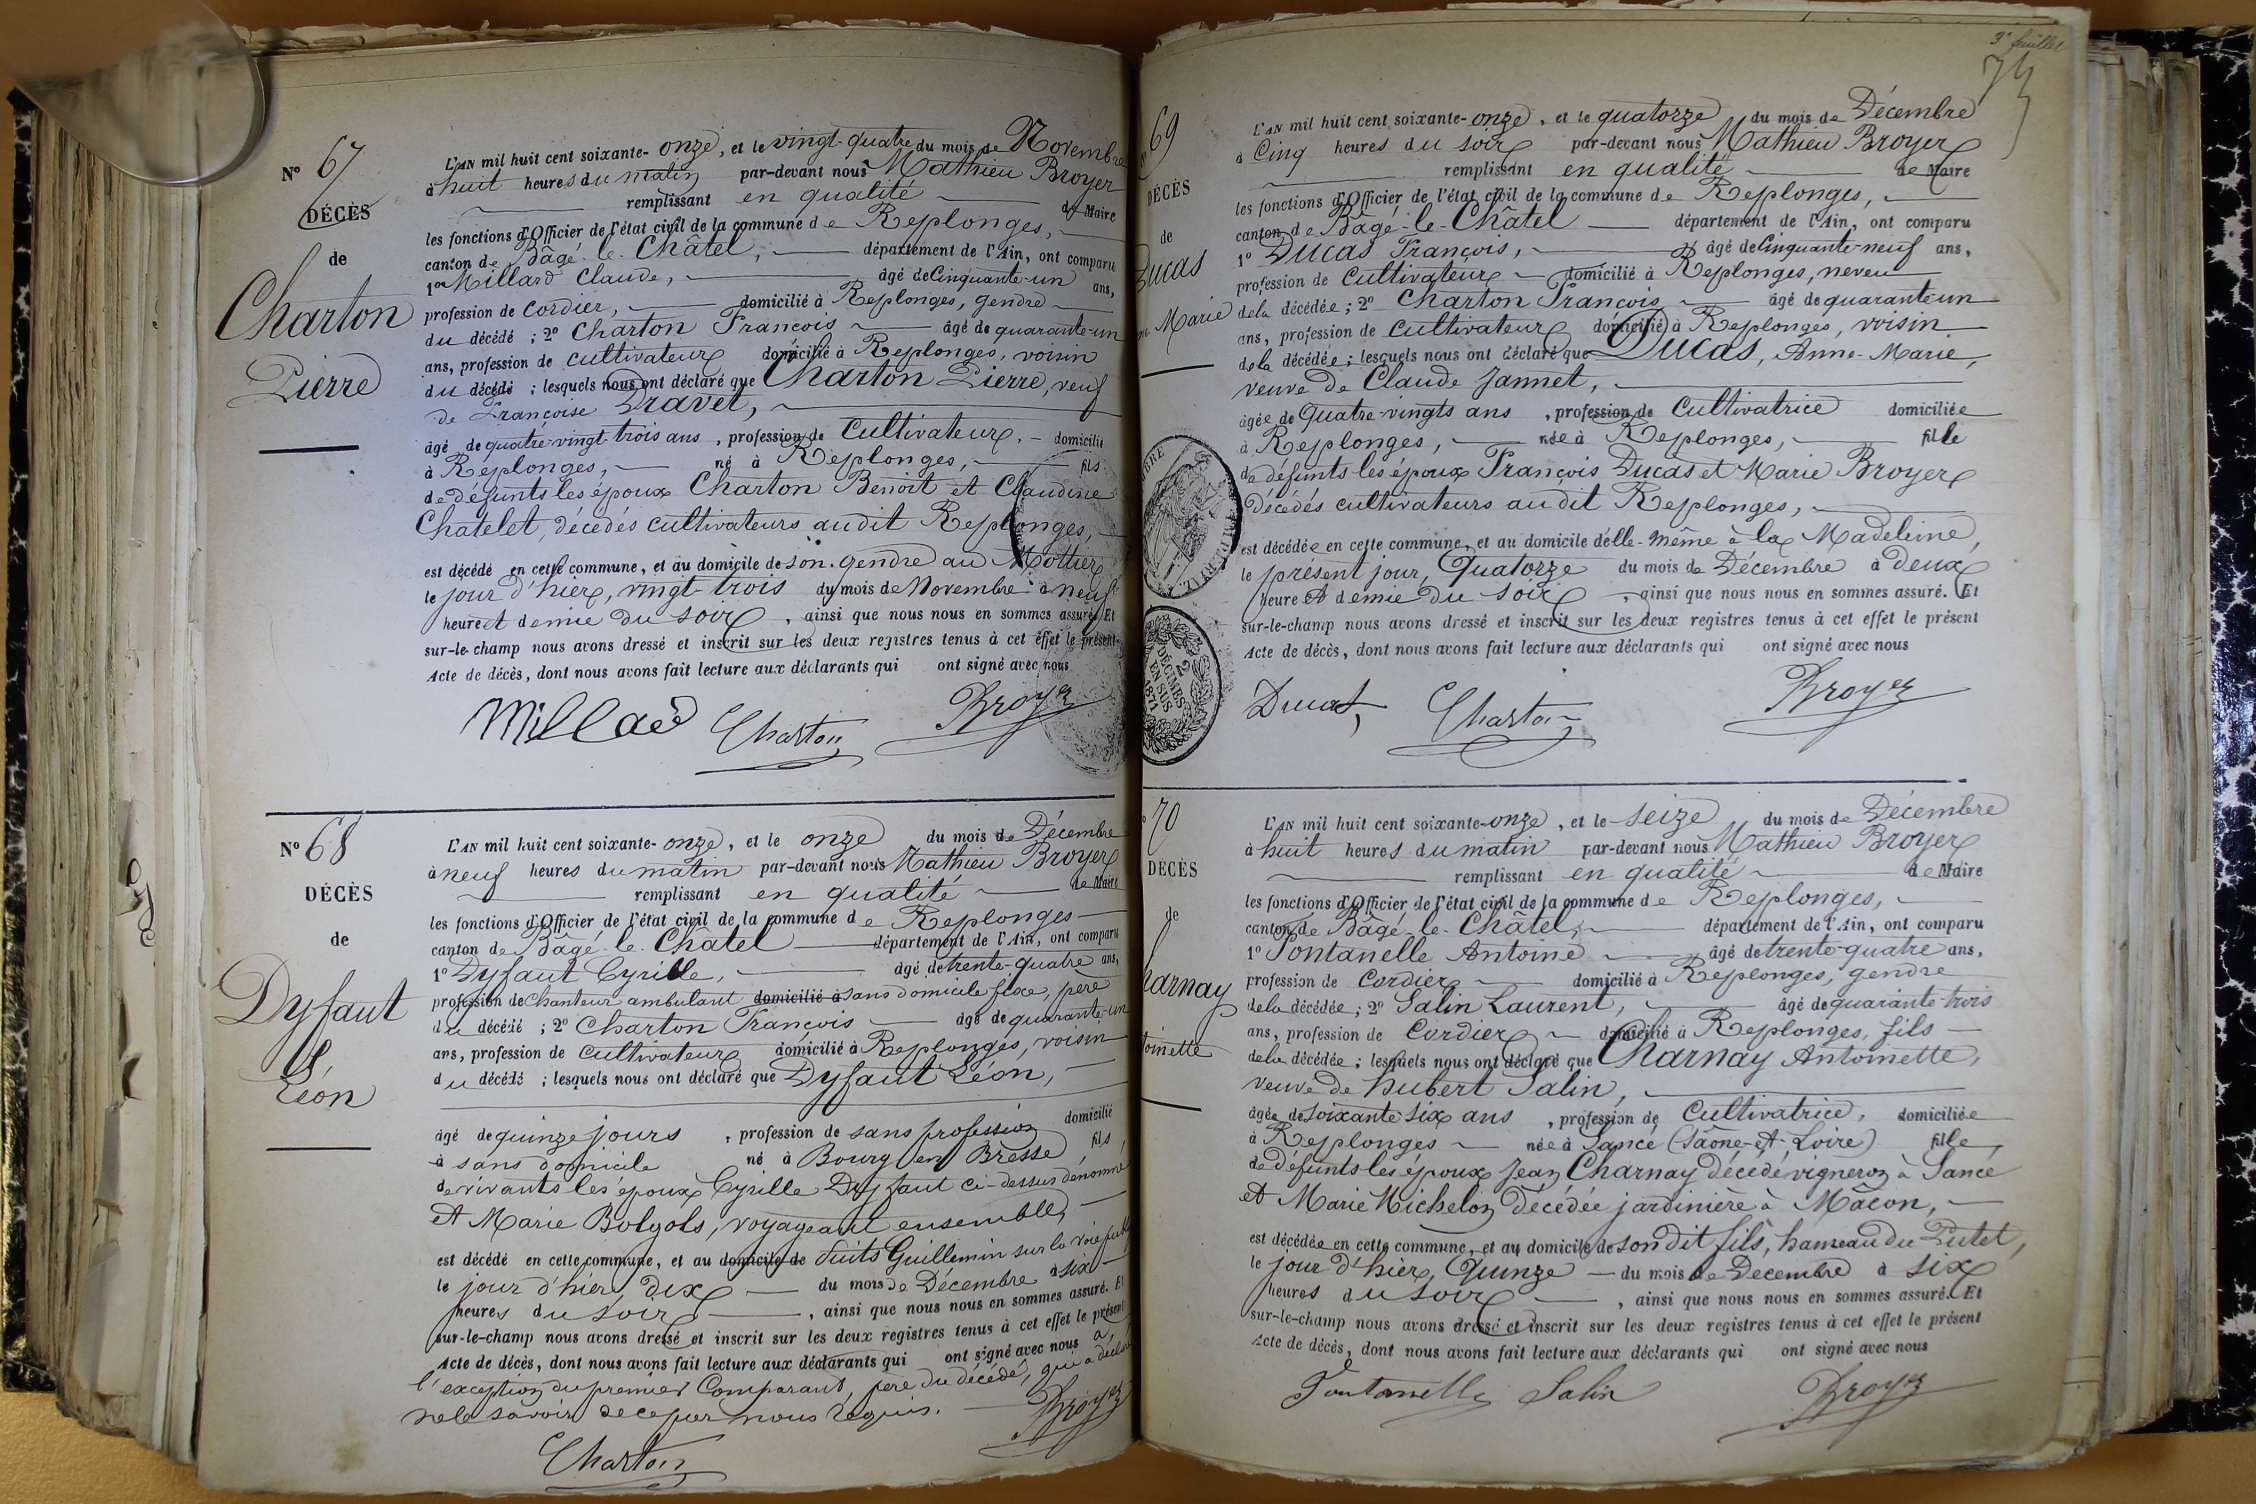 N° 67
DÉCÈS
de
Charton
Pierre
L'AN mil huit cent soixante-onze, et le vingt-quatre du mois de Novembre
à huit heures du matin par-devant nous Mathieu Broyer
remplissant en qualité de Maire
les fonctions d'Officier de l'état civil de la commune de Replonges,
canton de Bâgé-le-Châtel, département de l'Ain, ont comparu
1° Millard Claude, âgé de Cinquante-un ans,
profession de Cordier, domicilié à Replonges, gendre
du décédé ; 2° Charton François âgé de quarante-un
ans, profession de cultivateur domicilié à Replonges, voisin
du décédé ; lesquels nous ont déclaré que Charton Pierre, veuf
de Françoise Dravet,
âgé de quatre-vingt-trois ans, profession de Cultivateur, domicilié
à Replonges, né à Replonges, fils
de défunts les époux Charton Benoit et Claudine
Chatelet, décédés cultivateurs audit Replonges,
est décédé en cette commune, et au domicile de son gendre au Mottier
le jour d'hier, vingt-trois du mois de Novembre à neuf
heure et demie du soir, ainsi que nous nous en sommes assuré. Et
sur-le-champ nous avons dressé et inscrit sur les deux registres tenus à cet effet le présent
Acte de décès, dont nous avons fait lecture aux déclarants qui ont signé avec nous
Millard Charton Broyer
N° 68
DÉCÈS
de
Dyfaut
Léon
L'AN mil huit cent soixante-onze, et le onze du mois de Décembre
à neuf heures du matin par-devant nous Mathieu Broyer
remplissant en qualité de Maire
les fonctions d'Officier de l'état civil de la commune de Replonges
canton de Bâgé-le-Châtel département de l'Ain, ont comparu
1° Dyfaut Cyrille, âgé de trente-quatre ans,
profession de Chanteur ambulant domicilié à sans domicile fixe, père
du décédé ; 2° Charton François âgé de quarante-un
ans, profession de cultivateur domicilié à Replonges, voisin
du décédé ; lesquels nous ont déclaré que Dyfaut Léon,
âgé de quinze jours, profession de sans profession domicilié
à sans domicile né à Bourg en Bresse fils
de vivants les époux Cyrille Dyfaut ci-dessus dénommé
et Marie Bolgols, voyageant ensemble,
est décédé en cette commune, et au domicile de Puits Guillemin sur la voie publ
le jour d'hier, dix du mois de Décembre à six
heures du soir, ainsi que nous nous en sommes assuré. Et
sur-le-champ nous avons dressé et inscrit sur les deux registres tenus à cet effet le présent
Acte de décès, dont nous avons fait lecture aux déclarants qui ont signé avec nous à
l'exception du premier Comparant, père du décédé, qui a déclaré
ne le savoir de ce par nous requis.
Charton Broyer
3e feuillet
69
DÉCÈS
de
Ducas
Marie
L'AN mil huit cent soixante-onze, et le quatorze du mois de Décembre
à Cinq heures du soir par-devant nous Mathieu Broyer
remplissant en qualité de Maire
les fonctions d'Officier de l'état civil de la commune de Replonges,
canton de Bâgé-le-Châtel département de l'Ain, ont comparu
1° Ducas François, âgé de Cinquante-neuf ans,
profession de Cultivateur domicilié à Replonges, neveu
de la décédée ; 2° Charton François âgé de quarante-un
ans, profession de cultivateur domicilié à Replonges, voisin
de la décédée ; lesquels nous ont déclaré que Ducas, Anne-Marie,
veuve de Claude Jannet,
âgée de Quatre-vingts ans, profession de Cultivatrice domiciliée
à Replonges, née à Replonges, fille
de défunts les époux François Ducas et Marie Broyer
décédés cultivateurs audit Replonges,
est décédée en cette commune, et au domicile d'elle-même à la Madeleine,
le présent jour, Quatorze du mois de Décembre à deux
heure et demie du soir, ainsi que nous nous en sommes assuré. Et
sur-le-champ nous avons dressé et inscrit sur les deux registres tenus à cet effet le présent
Acte de décès, dont nous avons fait lecture aux déclarants qui ont signé avec nous
2 DÉCIMES
EN SUS
1871
Ducas Charton Broyer
70
DÉCÈS
de
harnay
toinette
L'AN mil huit cent soixante-onze, et le seize du mois de Décembre
à huit heures du matin par-devant nous Mathieu Broyer
remplissant en qualité de Maire
les fonctions d'Officier de l'état civil de la commune de Replonges,
canton de Bâgé-le-Châtel, département de l'Ain, ont comparu
1° Fontanelle Antoine âgé de trente-quatre ans,
profession de Cordier domicilié à Replonges, gendre
de la décédée ; 2° Salin Laurent, âgé de quarante-trois
ans, profession de Cordier domicilié à Replonges, fils
de la décédée ; lesquels nous ont déclaré que Charnay Antoinette,
veuve de hubert Salin,
âgée de soixante-six ans, profession de Cultivatrice, domiciliée
à Replonges née à Sancé (Saône-et-Loire) fille
de défunts les époux Jean Charnay décédé vigneron à Sancé
et Marie Michelon décédée jardinière à Mâcon,
est décédée en cette commune, et au domicile de son dit fils, hameau du Putet,
le jour d'hier, Quinze du mois de Décembre à six
heures du soir, ainsi que nous nous en sommes assuré. Et
sur-le-champ nous avons dressé et inscrit sur les deux registres tenus à cet effet le présent
Acte de décès, dont nous avons fait lecture aux déclarants qui ont signé avec nous
Fontanelle Salin Broyer